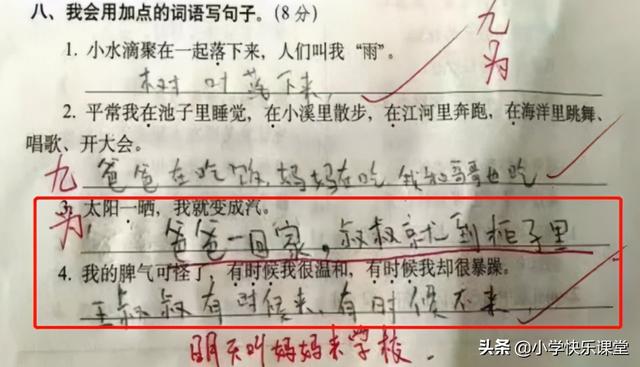 八、我会用加点的词语写句子。(8分)
1. 小水滴聚在一起落下来，人们叫我“雨”。
树叶落下来,
九
为
2. 平常我在池子里睡觉，在小溪里散步，在江河里奔跑，在海洋里跳舞、
唱歌、开大会。
九 爸爸在吃饭,妈妈在吃 我和哥哥也吃
为
3. 太阳一晒，我就变成汽。
爸爸一回家，叔叔就到柜子里
4. 我的脾气可怪了，有时候我很温和，有时候我却很暴躁。
王叔叔有时候来、有时候不来
明天叫妈妈来学校.
头条 @小学快乐课堂